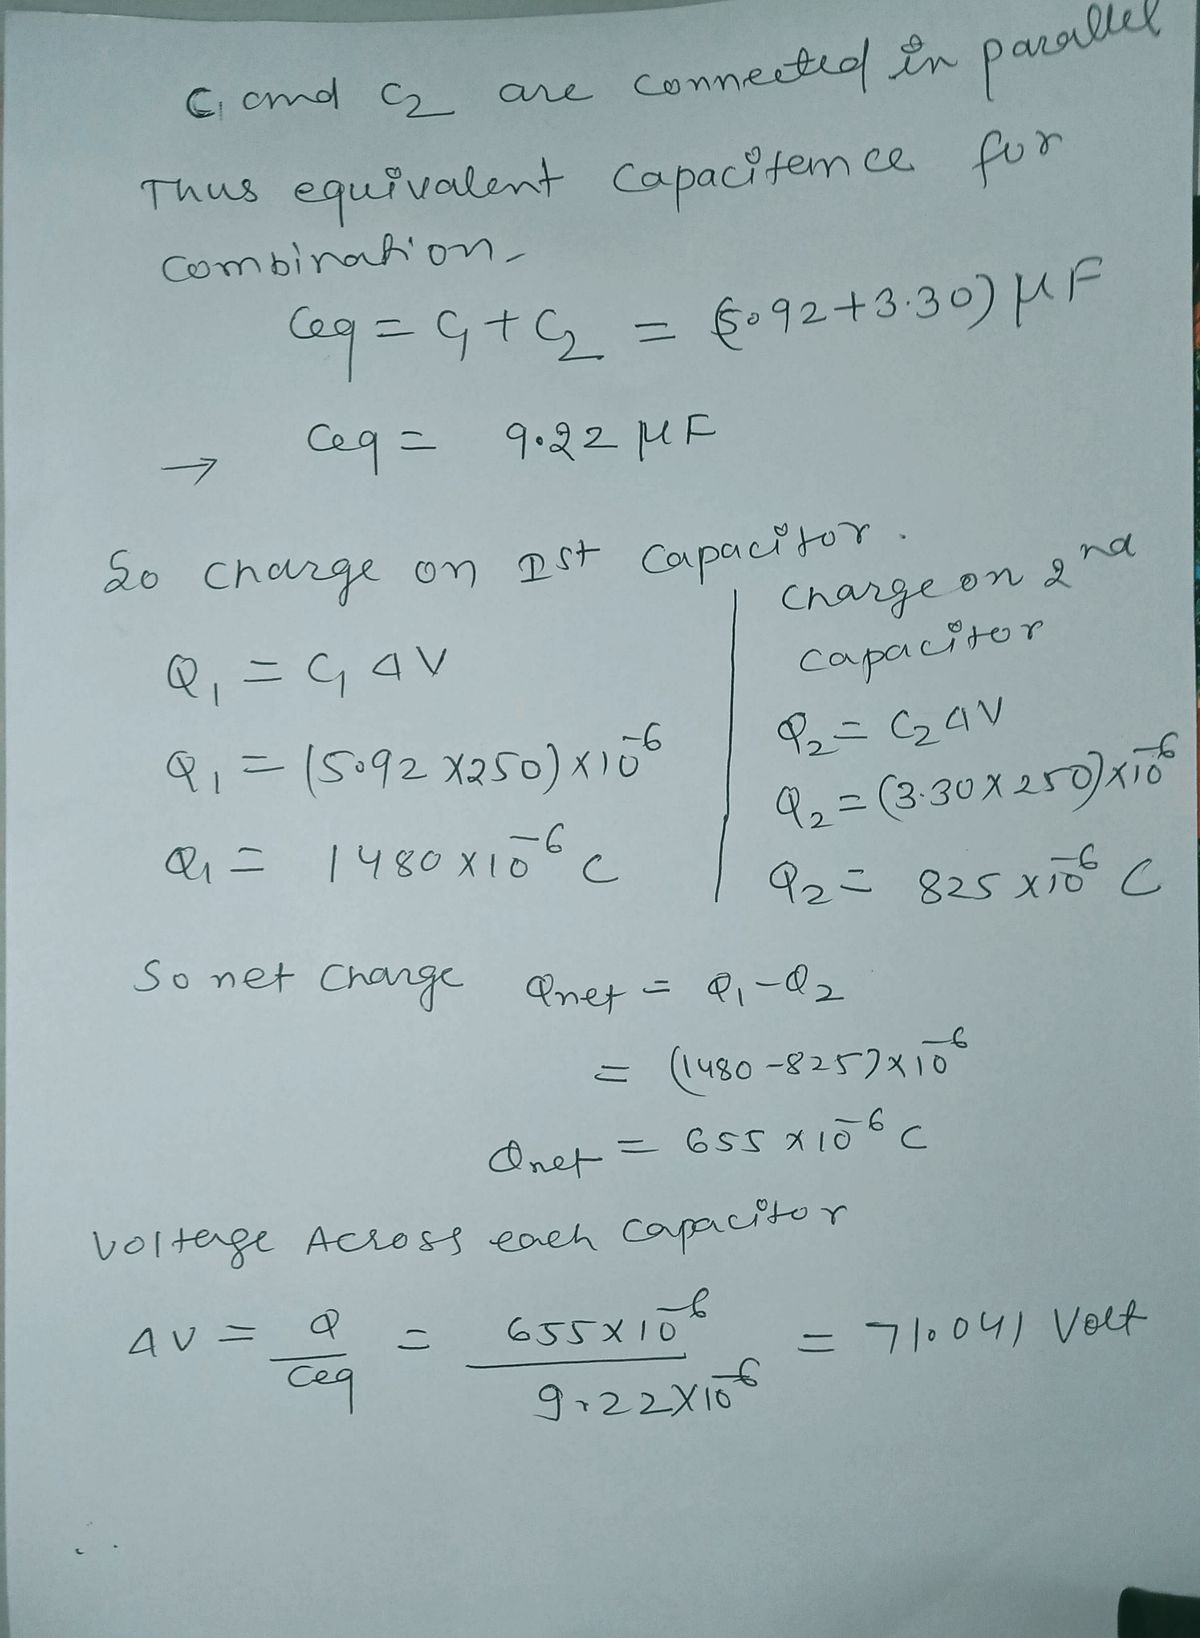 C₁ and C₂ are connected in parallel
Thus equivalent capacitence for
combination -
Ceq = C₁ + C₂ = (5.92+3.30) μF
→ Ceq = 9.22 μF
So charge on Ist capacitor.
Q₁ = C₁ ΔV
Q₁ = (5.92 X250) X10⁻⁶
Q₁ = 1480 X10⁻⁶ C
charge on 2nd
capacitor
Q₂ = C₂ ΔV
Q₂ = (3.30 X 250) X10⁻⁶
Q₂ = 825 X10⁻⁶ C
So net charge Qnet = Q₁ - Q₂
= (1480 - 825) X 10⁻⁶
Qnet = 655 X 10⁻⁶ C
Voltage Across each capacitor
ΔV = Q/Ceq = 655X10⁻⁶/9.22X10⁻⁶ = 71.041 Volt